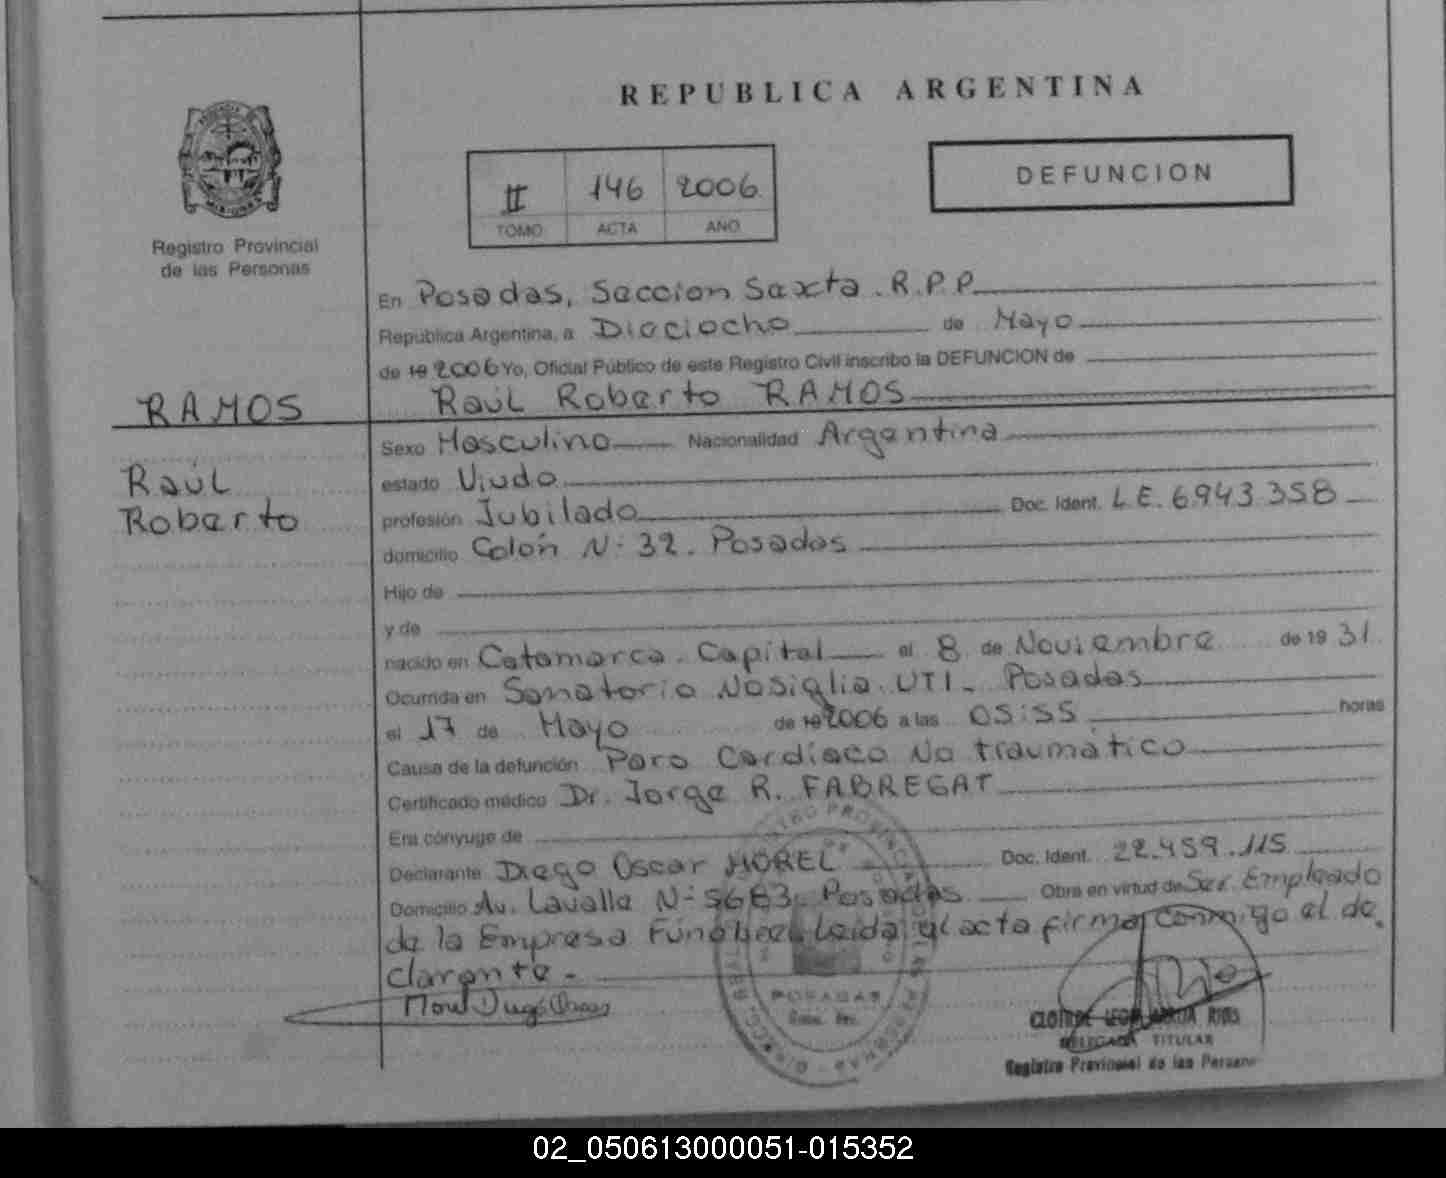 REPUBLICA ARGENTINA
DEFUNCION
II 146 2006
TOMO ACTA AÑO
MISIONES
Registro Provincial
de las Personas
En Posadas, Seccion Sexta. R.P.P.
República Argentina, a Dieciocho de Mayo
de 19 2006 Yo, Oficial Público de este Registro Civil inscribo la DEFUNCION de
RAMOS
Raúl Roberto RAMOS
Raúl
Roberto
Sexo Masculino Nacionalidad Argentina
estado Viudo
profesión Jubilado Doc. Ident. L.E. 6.943.358
domicilio Colón N: 32. Posadas
Hijo de
y de
nacido en Catamarca. Capital el 8 de Noviembre de 19 31
Ocurrida en Sanatorio Nosiglia. UTI. Posadas
el 17 de Mayo de 19 2006 a las 05:55 horas
Causa de la defunción Paro Cardíaco No traumático
Certificado médico Dr. Jorge R. FABREGAT
Era cónyuge de
Declarante Diego Oscar MOREL Doc. Ident. 22.459.115
Domicilio Av. Lavalle N: 5683. Posadas Obra en virtud de Ser. Empleado
de la Empresa Fúnebre. Leída el acta firma conmigo el de.
clarante.-
Morel Diego Oscar
POSADAS
DELEGADA TITULAR
Registro Provincial de las Personas
02_050613000051-015352